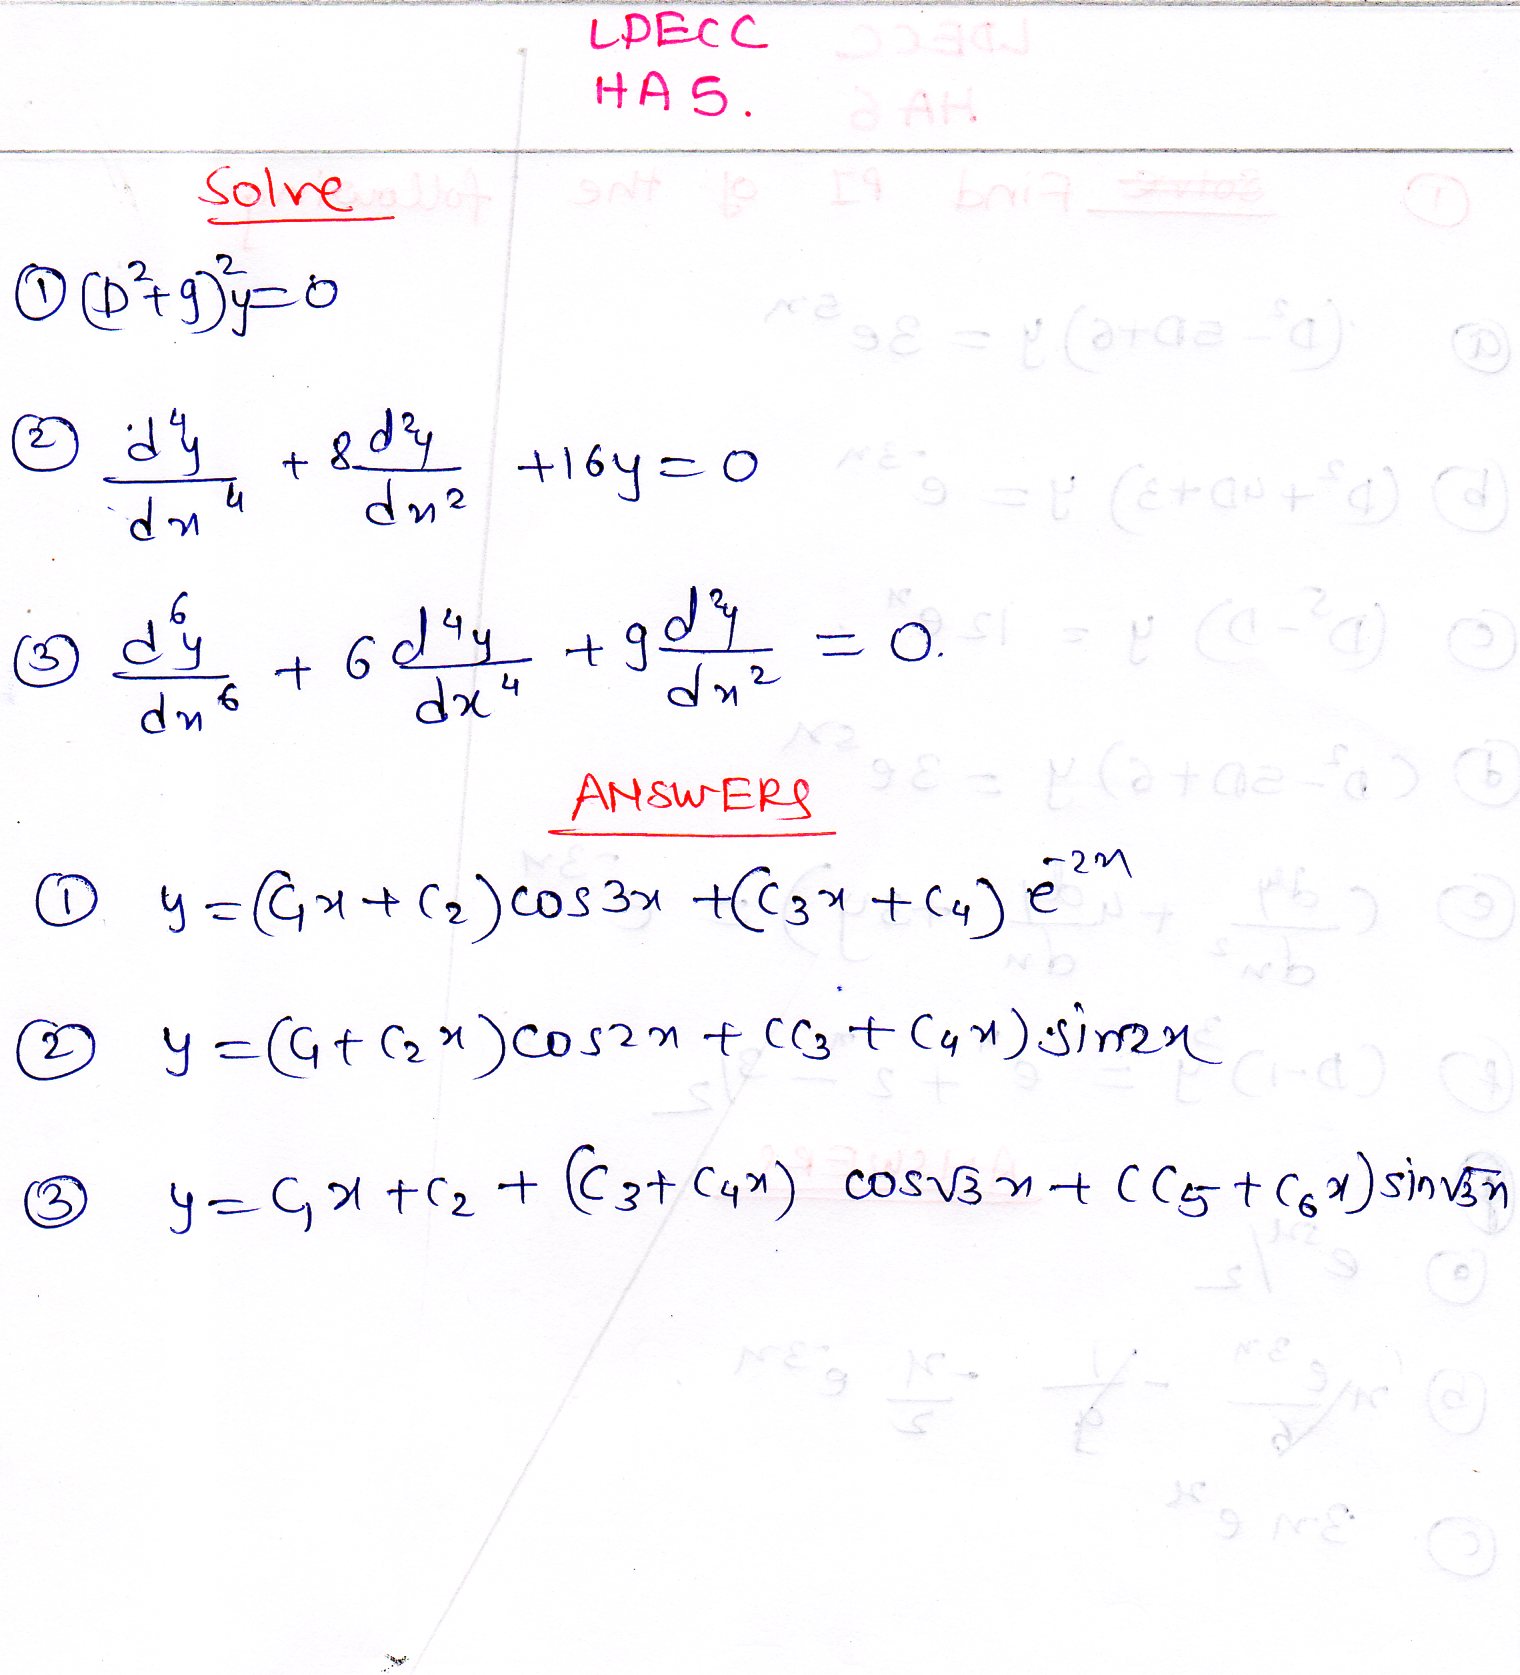 LDECC
HA 5.
Solve
① (D²+9)²y=0
② d⁴y/dx⁴ + 8 d²y/dx² +16y = 0
③ d⁶y/dx⁶ + 6 d⁴y/dx⁴ + 9 d²y/dx² = 0.
ANSWERS
① y = (C₁x + C₂) cos3x + (C₃x + C₄) e⁻²ˣ
② y = (C₁ + C₂x) cos2x + (C₃ + C₄x) sin2x
③ y = C₁x + C₂ + (C₃ + C₄x) cos√3x + (C₅ + C₆x) sin√3x